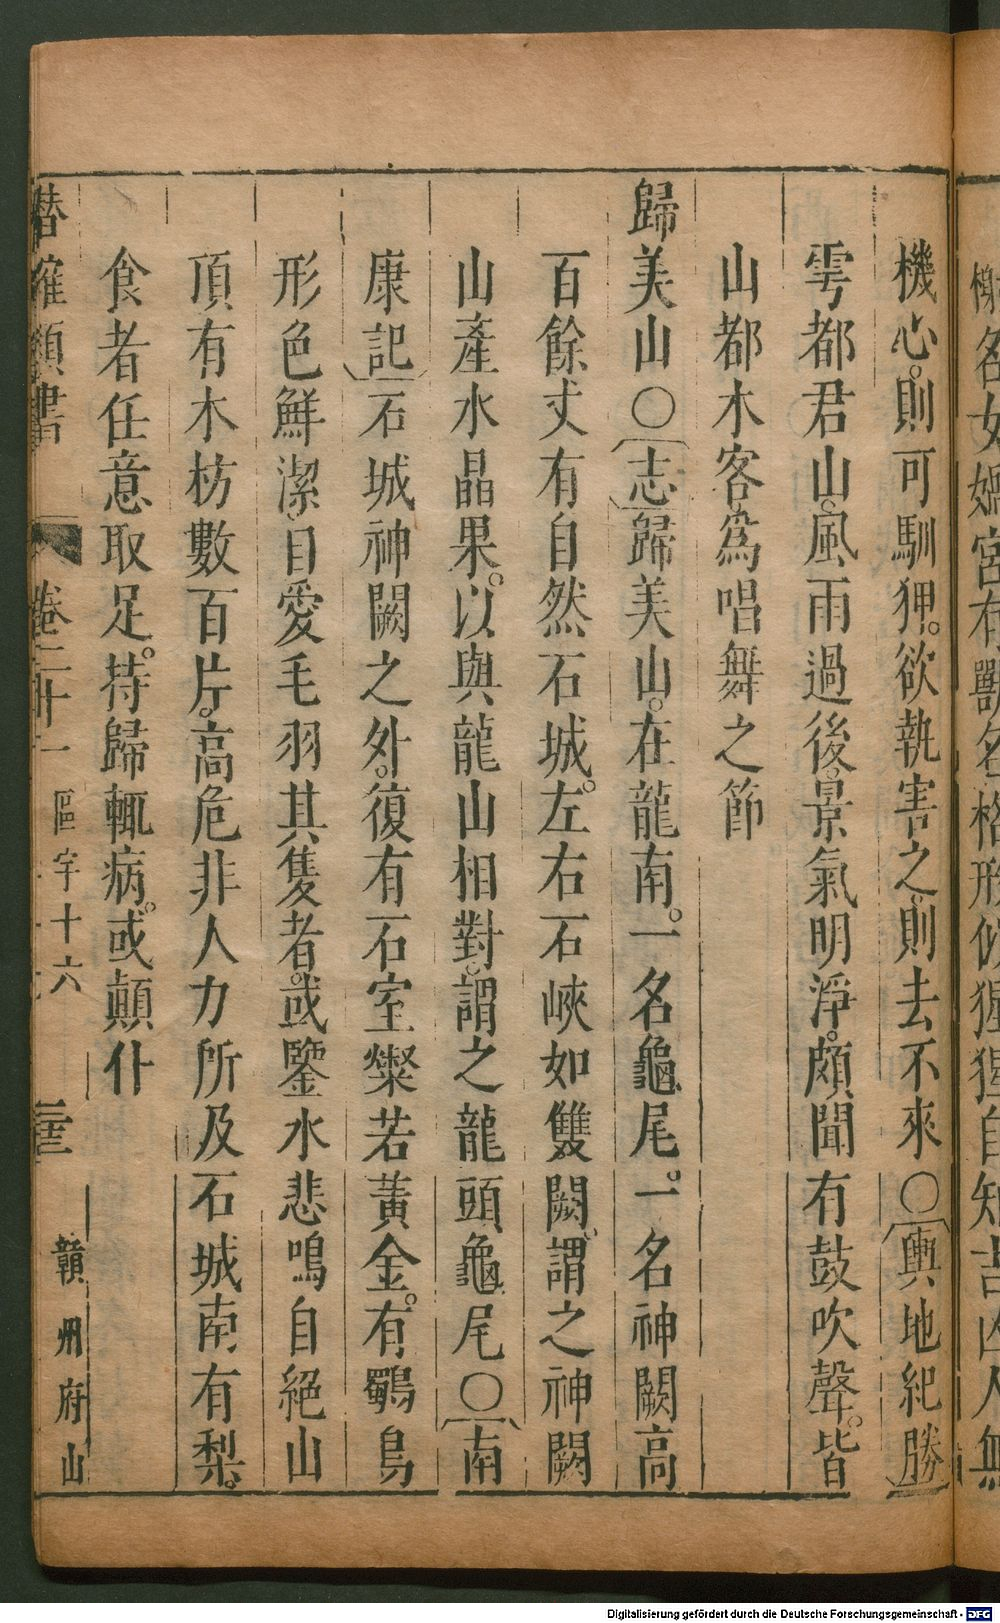 機心則可馴狎欲執害之則去不來〇輿地紀勝
雩都君山風雨過後景氣明淨頗聞有鼓吹聲皆
山都木客為唱舞之節
歸美山〇志歸美山在龍南一名龜尾一名神闕高
百餘丈有自然石城左右石峽如雙闕謂之神闕
山產水晶果以與龍山相對謂之龍頭龜尾〇南
康記石城神闕之外復有石室燦若黃金有鸚鳥
形色鮮潔自愛毛羽其隻者或鑒水悲鳴自絕山
頂有木枋數百片高危非人力所及石城南有梨
食者任意取足持歸輒病或顛仆
潛確類書 卷二十一 區宇十六 三 贛州府山
名女媧宮有獸名格形似猩猩自知吉凶人無
Digitalisierung gefördert durch die Deutsche Forschungsgemeinschaft - DFG